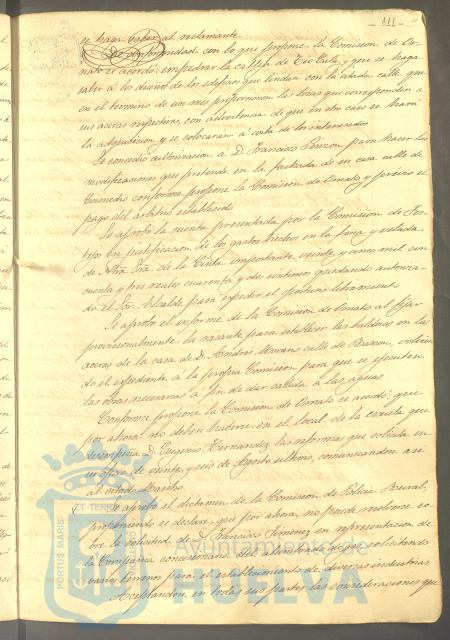 - 111 -
se haga saber al reclamante.
De conformidad con lo que propone la Comision de Or-
nato se acordó: empedrar la calleja de Tio Cula, y que se haga
saber á los dueños de los edificios que lindan con la citada calle que
en el termino de un mes proporcionen las losas que corresponden a
sus aceras respectivas, con advertencia de que en otro caso se hará
la adquisicion y se colocaran á costa de los interesados
Se concedió autorizacion á D. Francisco Penzon para hacer las
modificaciones que pretende en la fachada de su casa calle de
conforme propone la Comision de Ornato y previo el
pago del arbitrio establecido
Se aprobó la cuenta presentada por la Comision de Fes-
tejos en justificacion de los gastos hechos en la feria y velada
de Ntra. Sra. de la Cinta, importante veinte y cinco mil cin-
cuenta y tres reales cuarenta y dos centimos quedando autoriza-
do el Sor. Alcalde para expedir el oportuno libramiento
Se aprobó el informe de la Comision de Ornato al fijar
provisionalmente la rasante para establecer las baldosas en las
aceras de la casa de D. Andrés Morano calle de
do el expediente á la propia Comision para que se ejecuten
las obras necesarias á fin de dar salida á las aguas
Conforme propone la Comision de Ornato se acordó: que
por ahora no deben hacerse en el local de la escuela que
desempeña D. Eugenio Hernandez las reformas que solicita en
su oficio de veinte y seis de Agosto ultimo, comunicandose asi
al citado Maestro
Se aprobó el dictamen de la Comision de Policia Rural,
proponiendo se declare, que por ahora, no puede resolverse so-
bre la solicitud de D. Francisco Jimenez en representacion de
la Compañia concesionaria del alumbrado de gas solicitando
varios terrenos para el establecimiento de diversas industrias
Aceptandose en todas sus partes las consideraciones que
PORTUS MARIS
ET TERRÆ
Ayuntamiento de
HUELVA